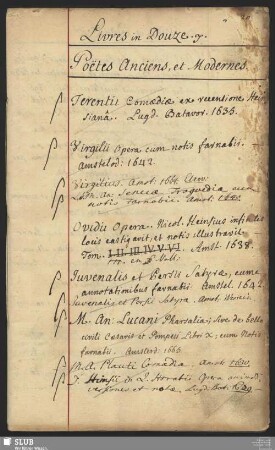 Livres in Douze. y.
Poëtes Anciens, et Modernes.
Terentii Comœdiæ ex recensione Hein-
sianâ. Lugd. Batavor. 1635.
Virgilii Opera cum notis farnabii.
Amstelod: 1642.
Virgilius. Amst. 1664.
L. An. Senecæ Tragœdiæ cum
notis farnabii. Amst.
Ovidii Opera. Nicol. Heinsius infinitis
locis castigavit, et notis illustravit.
Tom. I. II. III. IV. V. VI. Amst. 1658.
Juvenalis et Persii Satyræ, cum
annotationibus farnabii. Amstel. 1642.
Juvenalis et Persii Satyræ. Amst.
M. An. Lucani Pharsalia; sive de bello
civili Cæsaris et Pompeii Libri X; cum Notis
farnabii. Amsterd: 1665.
M. A. Plauti Comœdiæ. Amst.
D. Heinsii Q. Horatii Opera
et notæ Lugd. Bat. 1629.
SLUB
Wir führen Wissen.